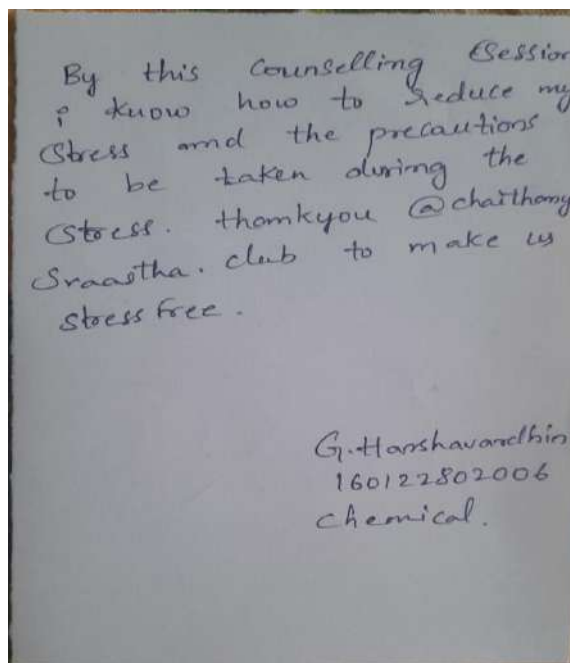 By this Counselling Session
i know how to reduce my
Stress and the precautions
to be taken during the
Stress. thamkyou @chaithany
Sraastha. club to make us
stress free.
G. Harshavardhin
160122802006
chemical.